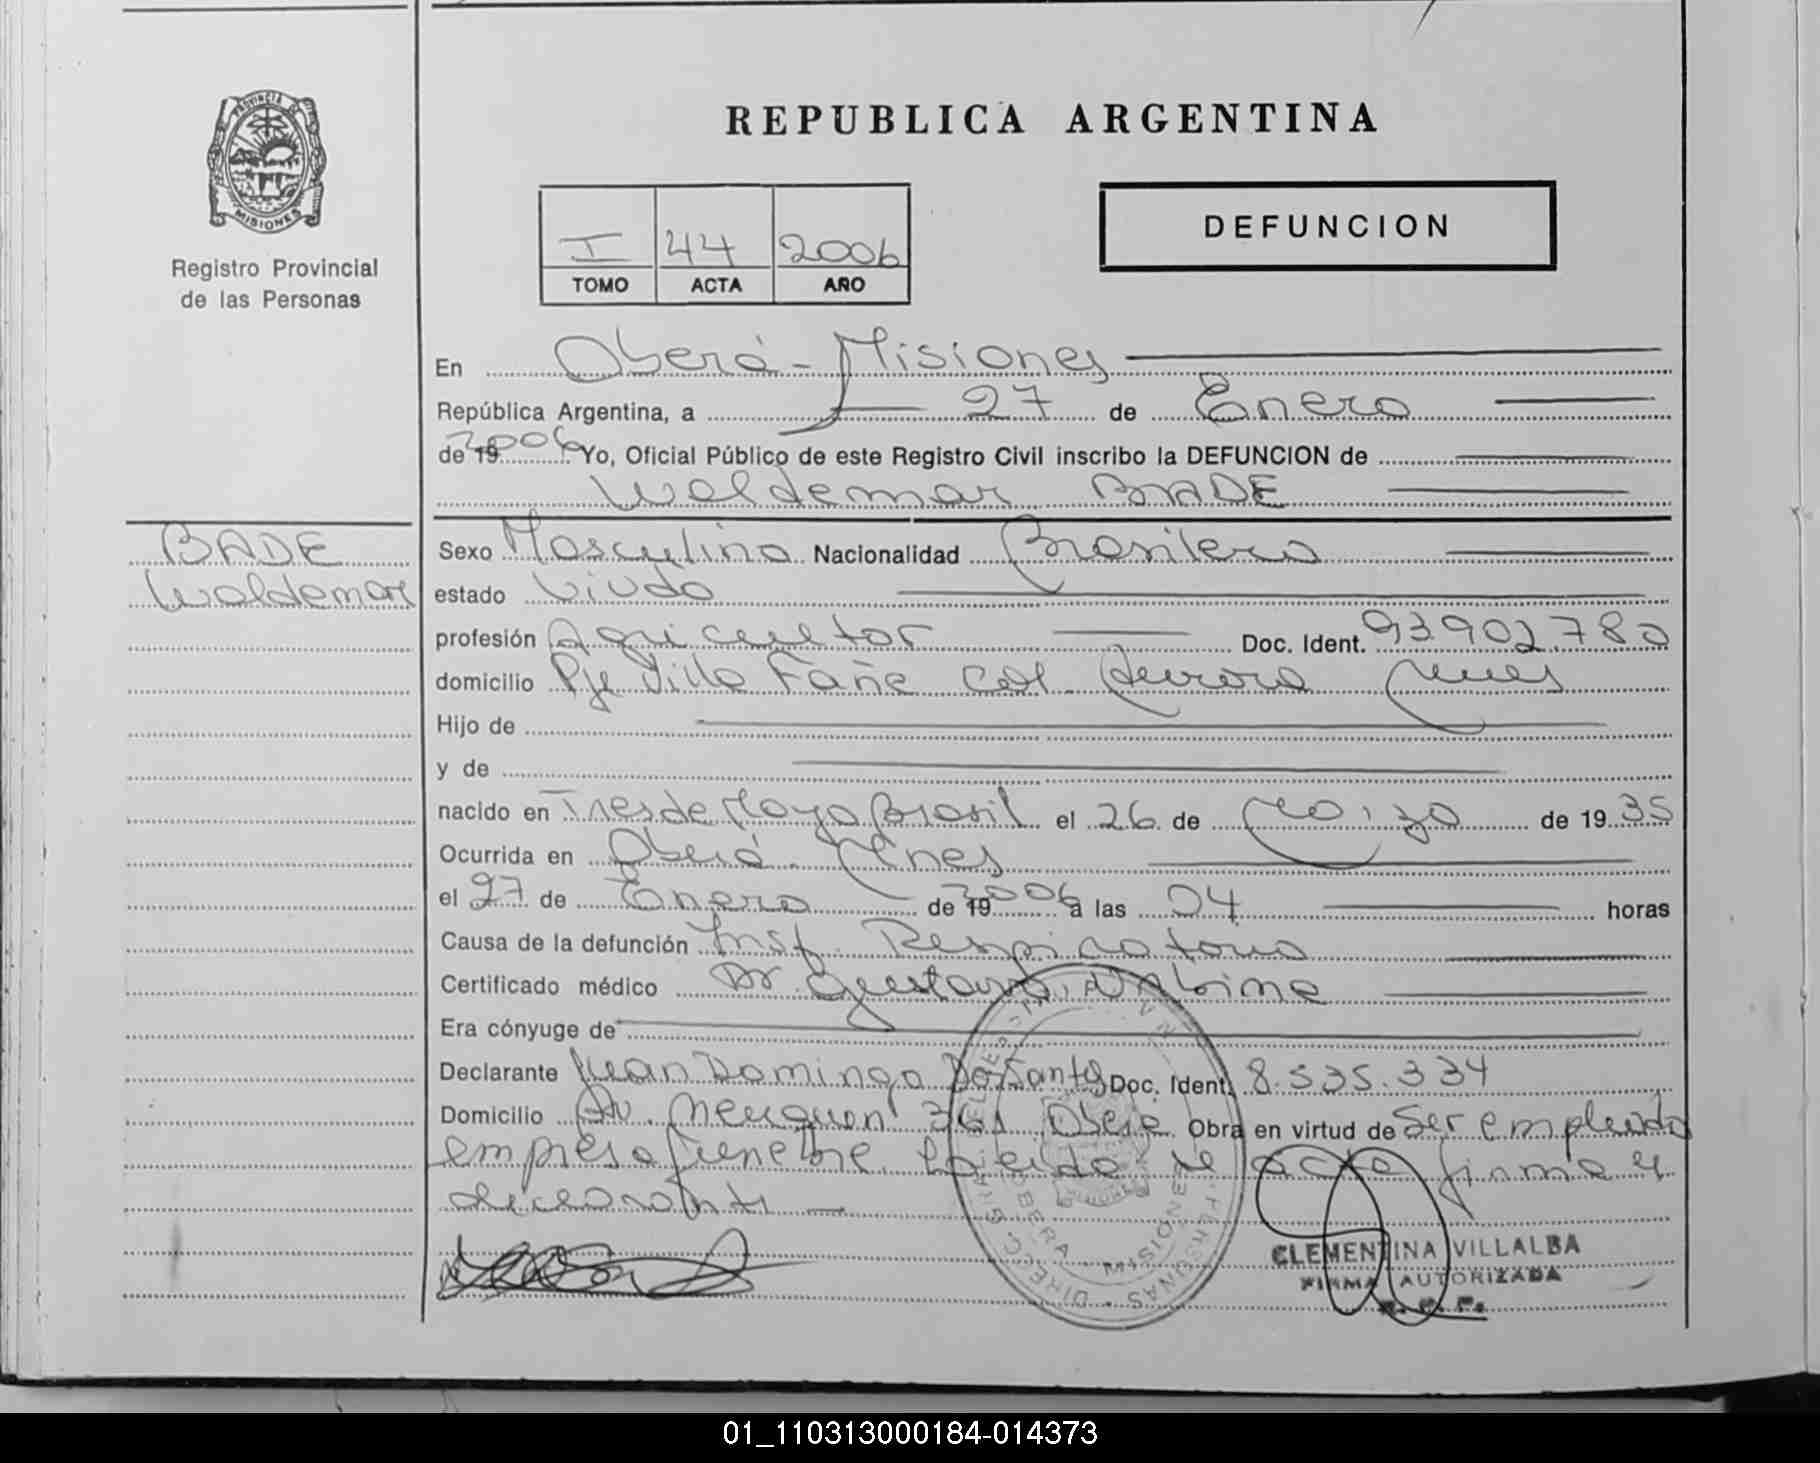 REPUBLICA ARGENTINA
PROVINCIA DE
MISIONES
Registro Provincial
de las Personas
I 44 2006
TOMO ACTA AÑO
DEFUNCION
En Oberá - Misiones
República Argentina, a 27 de Enero
de 19 2006 Yo, Oficial Público de este Registro Civil inscribo la DEFUNCION de
Waldemar BADE
BADE
Waldemar
Sexo Masculino Nacionalidad Brasilera
estado Viudo
profesión Agricultor Doc. Ident. 93.902.780
domicilio Pje Villa Fañe Col Aurora Mnes
Hijo de
y de
nacido en Tres de Mayo Brasil el 26 de Marzo de 19 35
Ocurrida en Oberá - Mnes
el 27 de Enero de 19 2006 a las 04 horas
Causa de la defunción Insf. Respiratoria
Certificado médico Dr Gustavo
Era cónyuge de
Declarante Juan Domingo Dos Santos Doc. Ident. 8.535.334
Domicilio Av. Neuquen 361 Oberá Obra en virtud de Ser empleado
empresa funebre. Leida el acta firma el
declarante
CLEMENTINA VILLALBA
FIRMA AUTORIZADA
R. P. P.
OBERA - MISIONES
01_110313000184-014373